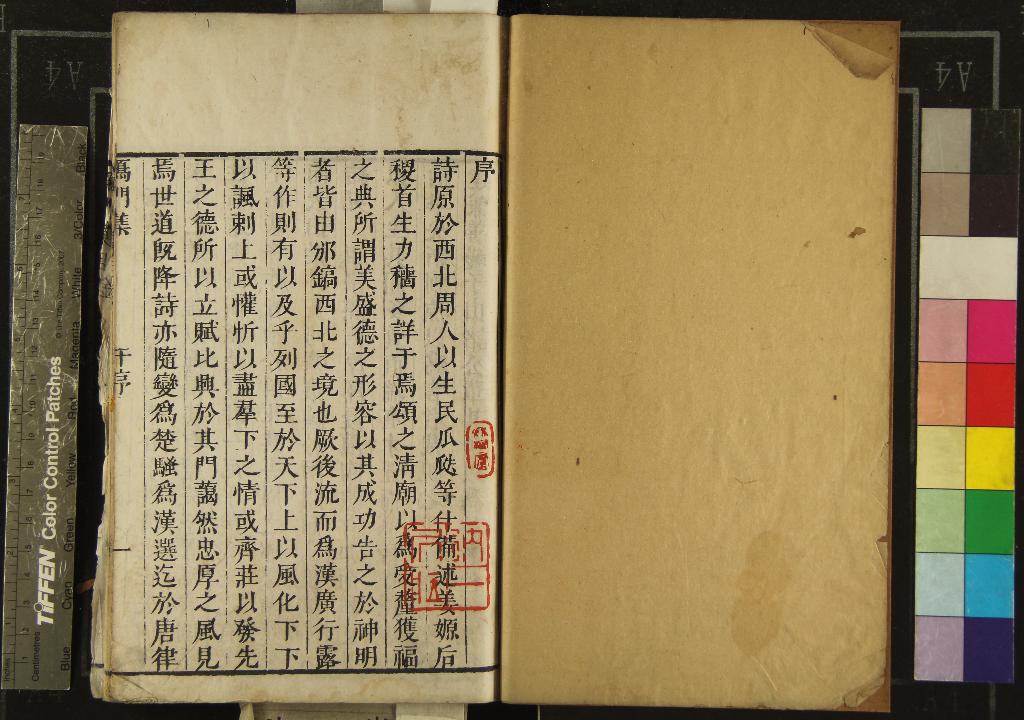 序
詩原於西北周人以生民瓜瓞等什備述姜嫄后
稷首生力穡之詳于焉頌之清廟以爲受釐獲福
之典所謂美盛德之形容以其成功告之於神明
者皆由邠鎬西北之境也厥後流而爲漢廣行露
等作則有以及乎列國至於天下上以風化下下
以諷刺上或懽忻以盡羣下之情或齊莊以發先
王之德所以立賦比興於其門藹然忠厚之風見
焉世道既降詩亦隨變爲楚騷爲漢選迄於唐律
門集
序
一
TIFFEN Color Control Patches
Blue Cyan Green Yellow Red Magenta White 3/Color Black
Centimetres
Inches
A4
A4